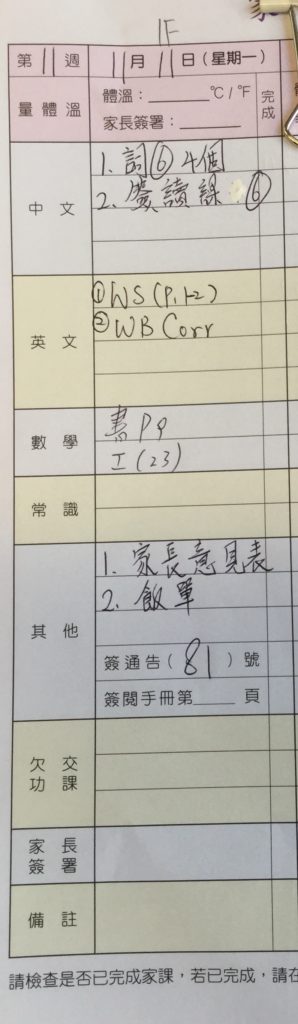 1F
第 11 週 11 月 11 日 (星期一)
量體溫 體溫：______°C / °F 完成
家長簽署：______
中文 1. 詞⑥ 4個
2. 簽讀錄 ⑥
英文 ① WS (P.1-2)
② WB Corr
數學 書 P9
工 (23)
常識
其他 1. 家長意見表
2. 飯單
簽通告 ( 81 ) 號
簽閱手冊第____頁
欠交功課
家長簽署
備註
請檢查是否已完成家課，若已完成，請在